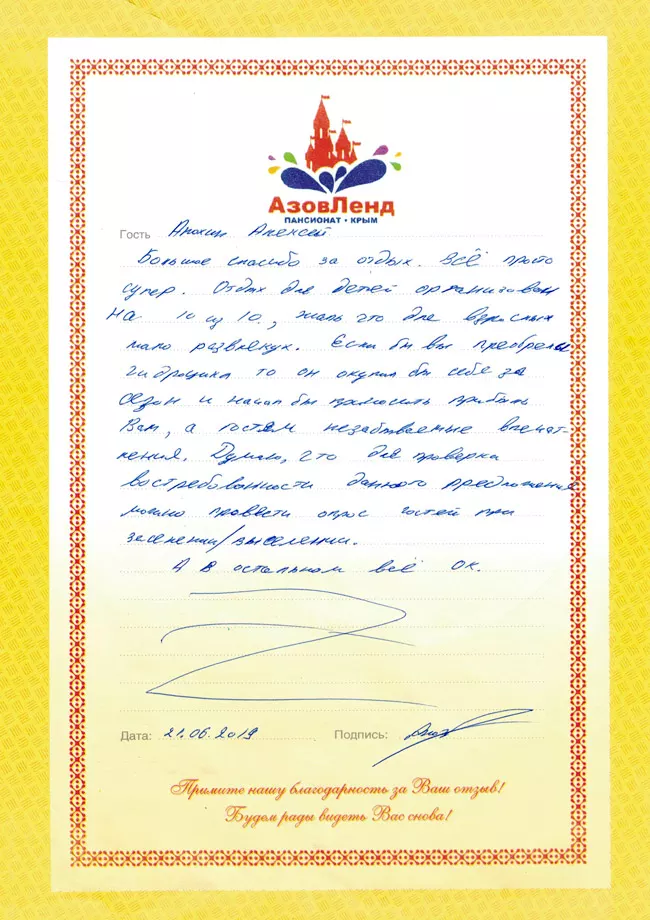 АзовЛенд
ПАНСИОНАТ • КРЫМ
Гость Анохин Алексей
Большое спасибо за отдых. Всё просто
супер. Отдых для детей организован
на 10 из 10, жаль что для взрослых
мало развлекух. Если бы вы преобрели
гидроцикл то он окупил бы себе за
сезон и начал бы приносить прибыль
Вам, а гостям незабываемые впечат-
ления. Думаю, что для проверки
востребованности данного предложения
можно провести опрос гостей при
заселении/выселении.
А в остальном всё ок.
Дата: 21.06.2019 Подпись:
Примите нашу благодарность за Ваш отзыв!
Будем рады видеть Вас снова!